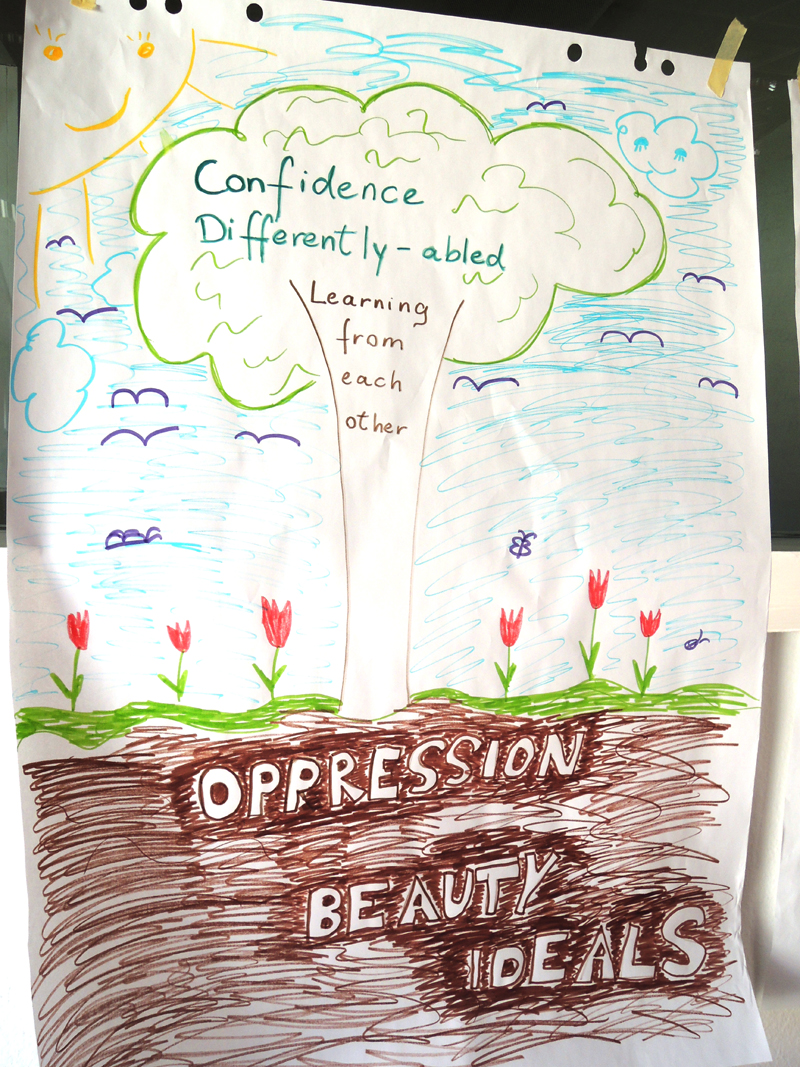 Confidence
Differently-abled
Learning
from
each
other
OPPRESSION
BEAUTY
IDEALS